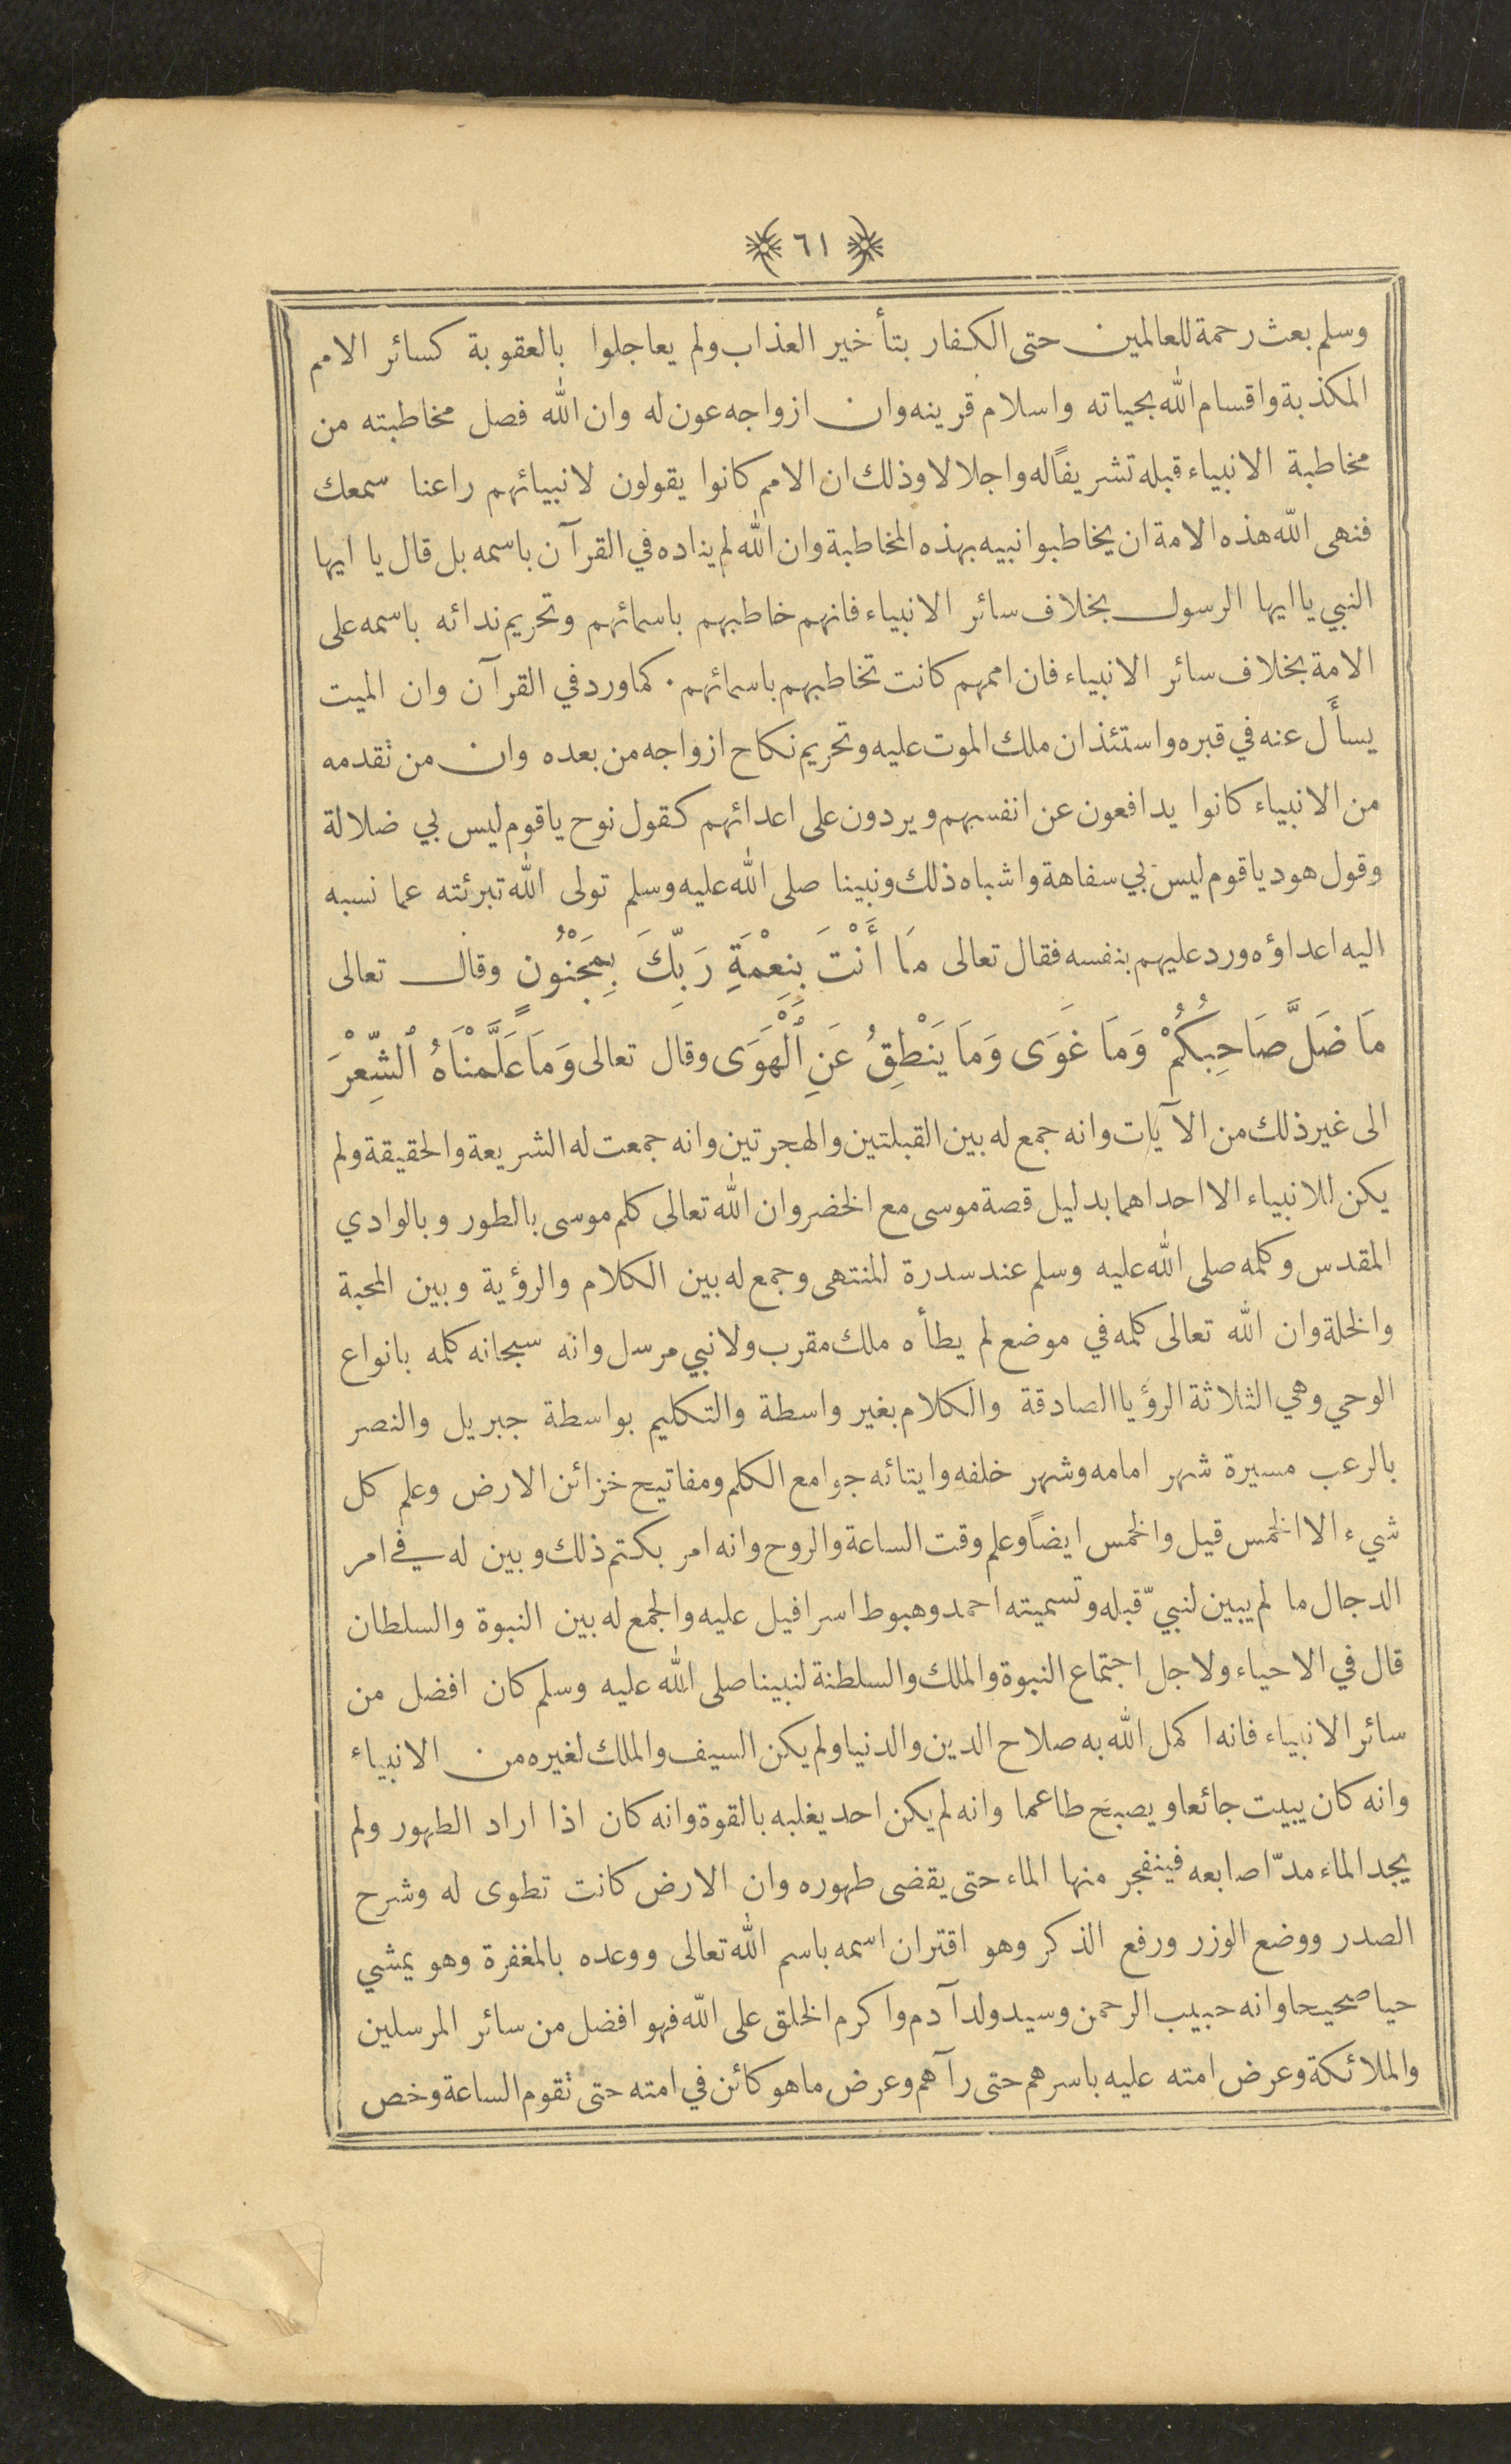 ٦١
وسلم بعث رحمة للعالمين حتى الكفار بتأخير العذاب ولم يعاجلوا بالعقوبة كسائر الامم
المكذبة واقسام الله بحياته واسلام قرينه وان ازواجه عون له وان الله فصل مخاطبته من
مخاطبة الانبياء قبله تشريفًا له واجلالا وذلك ان الامم كانوا يقولون لانبيائهم راعنا سمعك
فنهى الله هذه الامة ان يخاطبوا نبيه بهذه المخاطبة وان الله لم يناده في القرآن باسمه بل قال يا ايها
النبي يا ايها الرسول بخلاف سائر الانبياء فانهم خاطبهم باسمائهم وتحريم ندائه باسمه على
الامة بخلاف سائر الانبياء فان اممهم كانت تخاطبهم باسمائهم . كما ورد في القرآن وان الميت
يسأَل عنه في قبره واستئذان ملك الموت عليه وتحريم نكاح ازواجه من بعده وان من تقدمه
من الانبياء كانوا يدافعون عن انفسهم ويردون على اعدائهم كقول نوح يا قوم ليس بي ضلالة
وقول هود يا قوم ليس بي سفاهة واشباه ذلك ونبينا صلى الله عليه وسلم تولى الله تبرئته عما نسبه
اليه اعداؤه ورد عليهم بنفسه فقال تعالى مَا أَنْتَ بِنِعْمَةِ رَبِّكَ بِمَجْنُونٍ وقال تعالى
مَا ضَلَّ صَاحِبُكُمْ وَمَا غَوَى وَمَا يَنْطِقُ عَنِ ٱلْهَوَى وقال تعالى وَمَا عَلَّمْنَاهُ ٱلشِّعْرَ
الى غير ذلك من الآيات وانه جمع له بين القبلتين والهجرتين وانه جمعت له الشريعة والحقيقة ولم
يكن للانبياء الا احداهما بدليل قصة موسى مع الخضر وان الله تعالى كلم موسى بالطور وبالوادي
المقدس وكلمه صلى الله عليه وسلم عند سدرة المنتهى وجمع له بين الكلام والرؤية وبين المحبة
والخلة وان الله تعالى كلمه في موضع لم يطأه ملك مقرب ولا نبي مرسل وانه سبحانه كلمه بانواع
الوحي وهي الثلاثة الرؤيا الصادقة والكلام بغير واسطة والتكليم بواسطة جبريل والنصر
بالرعب مسيرة شهر امامه وشهر خلفه وايتائه جوامع الكلم ومفاتيح خزائن الارض وعلم كل
شيء الا الخمس قيل والخمس ايضًا وعلم وقت الساعة والروح وانه امر بكتم ذلك وبين له في امر
الدجال ما لم يبين لنبيّ قبله وتسميته احمد وهبوط اسرافيل عليه والجمع له بين النبوة والسلطان
قال في الاحياء ولاجل اجتماع النبوة والملك والسلطنة لنبينا صلى الله عليه وسلم كان افضل من
سائر الانبياء فانه اكمل الله به صلاح الدين والدنيا ولم يكن السيف والملك لغيره من الانبياء
وانه كان يبيت جائعا ويصبح طاعما وانه لم يكن احد يغلبه بالقوة وانه كان اذا اراد الطهور ولم
يجد الماء مدّ اصابعه فينفجر منها الماء حتى يقضى طهوره وان الارض كانت تطوى له وشرح
الصدر ووضع الوزر ورفع الذكر وهو اقتران اسمه باسم الله تعالى ووعده بالمغفرة وهو يمشي
حيا صحيحا وانه حبيب الرحمن وسيد ولد آدم واكرم الخلق على الله فهو افضل من سائر المرسلين
والملائكة وعرض امته عليه باسرهم حتى رآهم وعرض ما هو كائن في امته حتى تقوم الساعة وخص